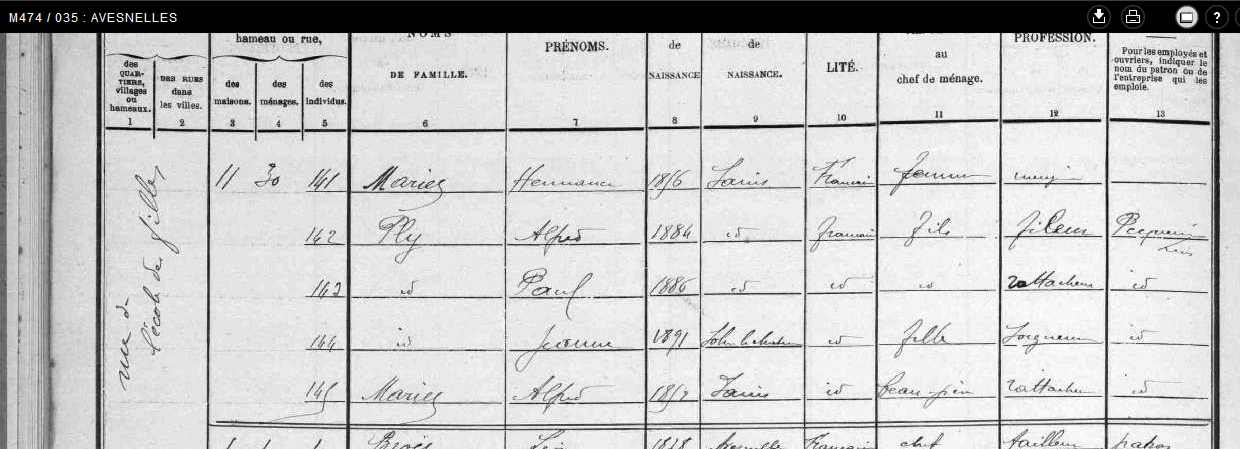 M474 / 035 : AVESNELLES
?
hameau ou rue,
NOMS
DE FAMILLE.
PRÉNOMS.
de
NAISSANCE
de
NAISSANCE.
LITÉ.
au
chef de ménage.
PROFESSION.
Pour les employés et
ouvriers, indiquer le
nom du patron ou de
l'entreprise qui les
emploie.
des
QUAR-
TIERS,
villages
ou
hameaux.
DES RUES
dans
les villes.
des
maisons.
des
ménages.
des
individus.
1 2 3 4 5 6 7 8 9 10 11 12 13
rue de
l'école des filles
11 30 141 Mariez Hermance 1856 Sains Française femme
142 Ply Alfred 1884 id français fils fileur
143 id Paul 1886 id id id rattacheur id
144 id Jeanne 1891 id fille Soigneuse id
145 Mariez Alfred Sains id beau-père rattacheur id
1 1 1 Avesnelles Français chef tailleur patron